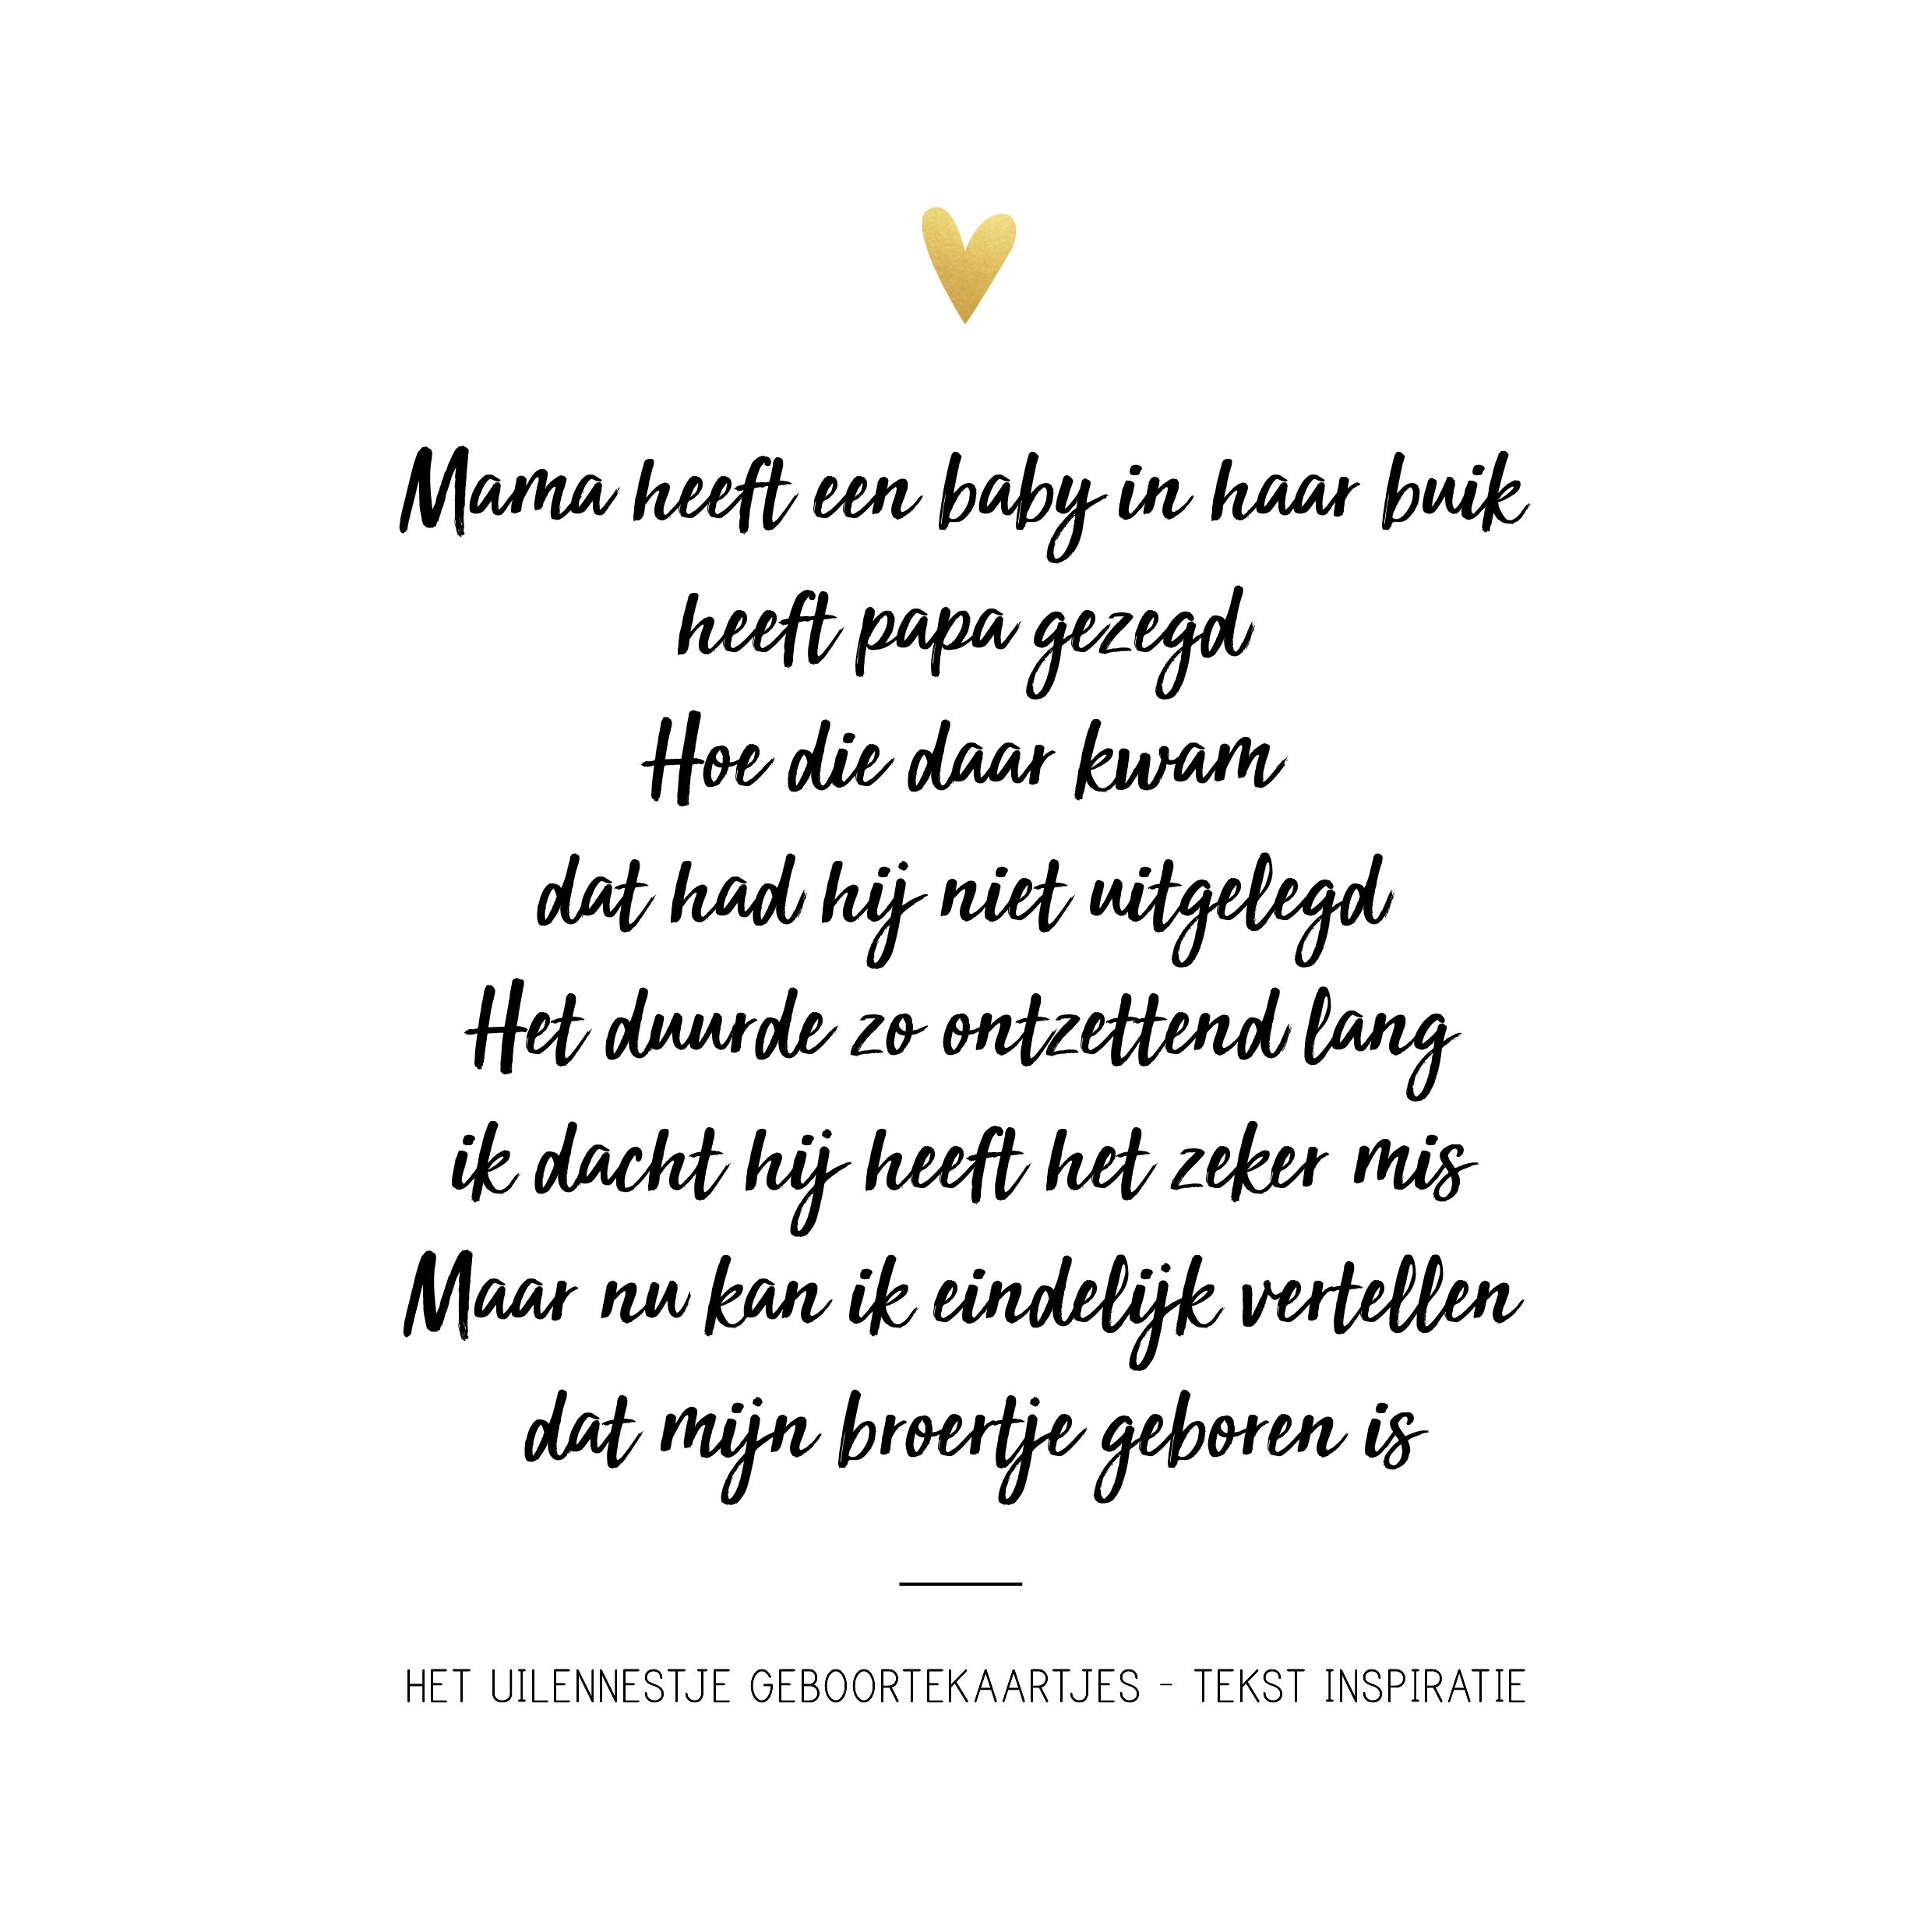 Mama heeft een baby in haar buik
heeft papa gezegd
Hoe die daar kwam
dat had hij niet uitgelegd
Het duurde zo ontzettend lang
ik dacht hij heeft het zeker mis
Maar nu kan ik eindelijk vertellen
dat mijn broertje geboren is
HET UILENNESTJE GEBOORTEKAARTJES - TEKST INSPIRATIE